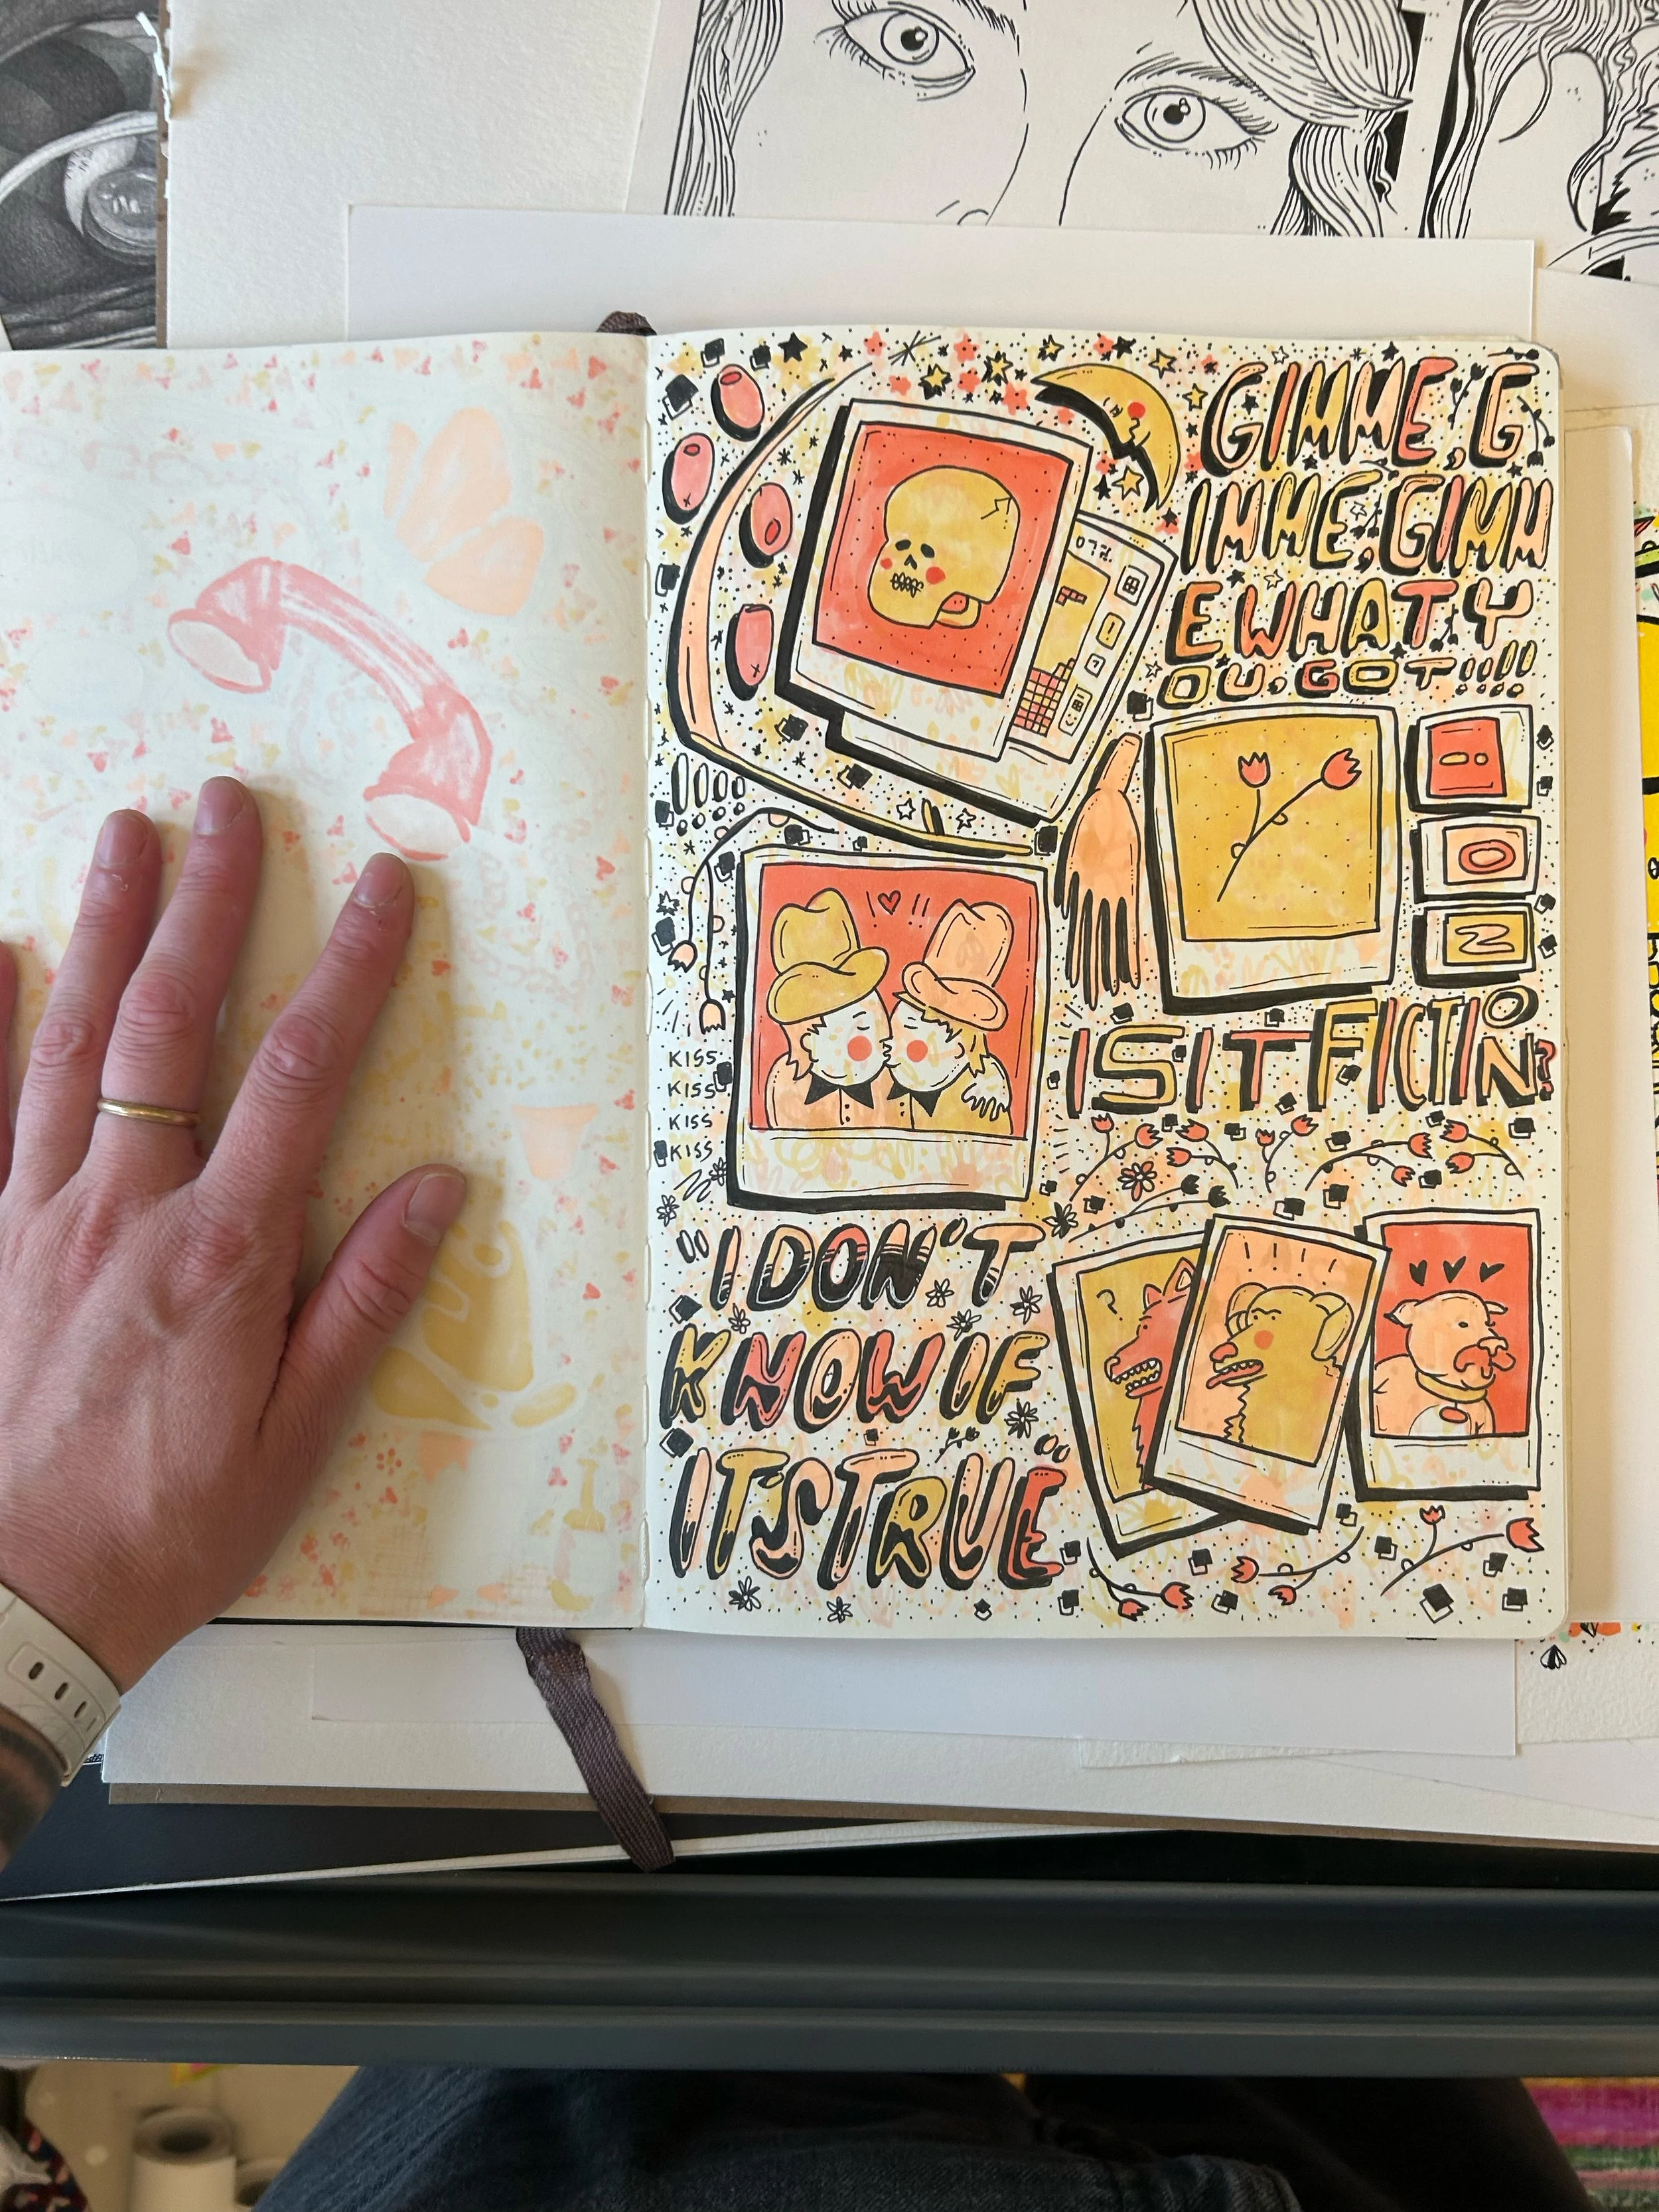 GIMME, G
IMME, GIMM
E WHAT Y
OU GOT!!!!
KISS
KISS
KISS
KISS
IS IT FICTION?
"I DON'T
KNOW IF
IT'S TRUE"